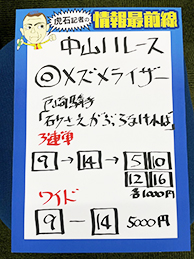 虎石記者の
情報最前線
中山11レース
◎メズメライザー
3連単
9→14→5 10
12 16
各1000円
ワイド
9-14 5000円